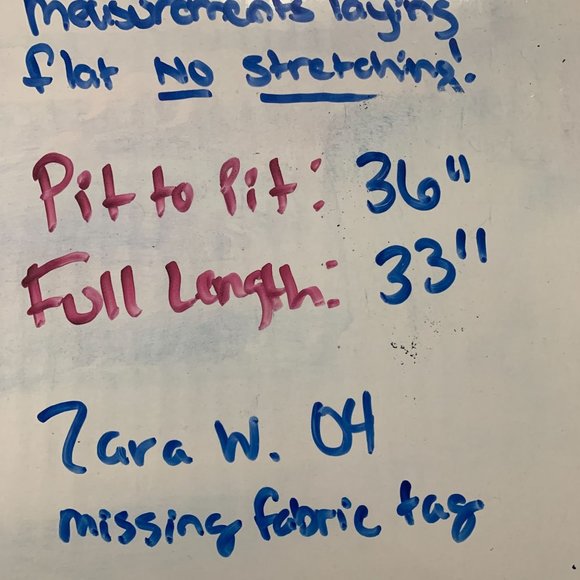 measurements laying
flat NO stretching!
Pit to Pit: 36"
Full Length: 33"
Zara W. 04
missing fabric tag